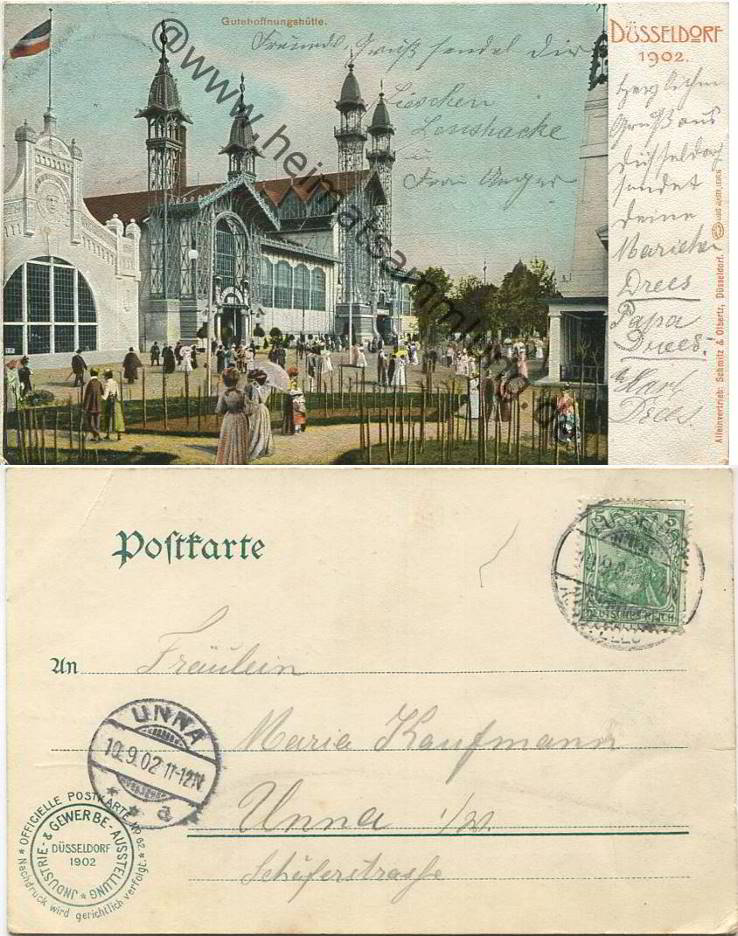 Gutehoffnungshütte.
DÜSSELDORF
1902.
Freundl. Gruß sendet Dir
Lieschen
u
Frau Unger
Herzlichen
Gruß aus
Düsseldorf
sendet
deine
Mariechen
Drees
Papa
Drees.
u Karl
Drees.
Alleinvertrieb: Schmitz & Olbertz, Düsseldorf.
@www.heimatsammlung.de
Postkarte
5 5
DEUTSCHES REICH
An Fräulein
Maria Kaufmann
Unna i/W.
Schäferstrasse
UNNA
10.9.02 11-12N.
* * a
* OFFICIELLE POSTKARTE No 02. *
INDUSTRIE- & GEWERBE-AUSSTELLUNG *
DÜSSELDORF
1902
Nachdruck wird gerichtlich verfolgt.